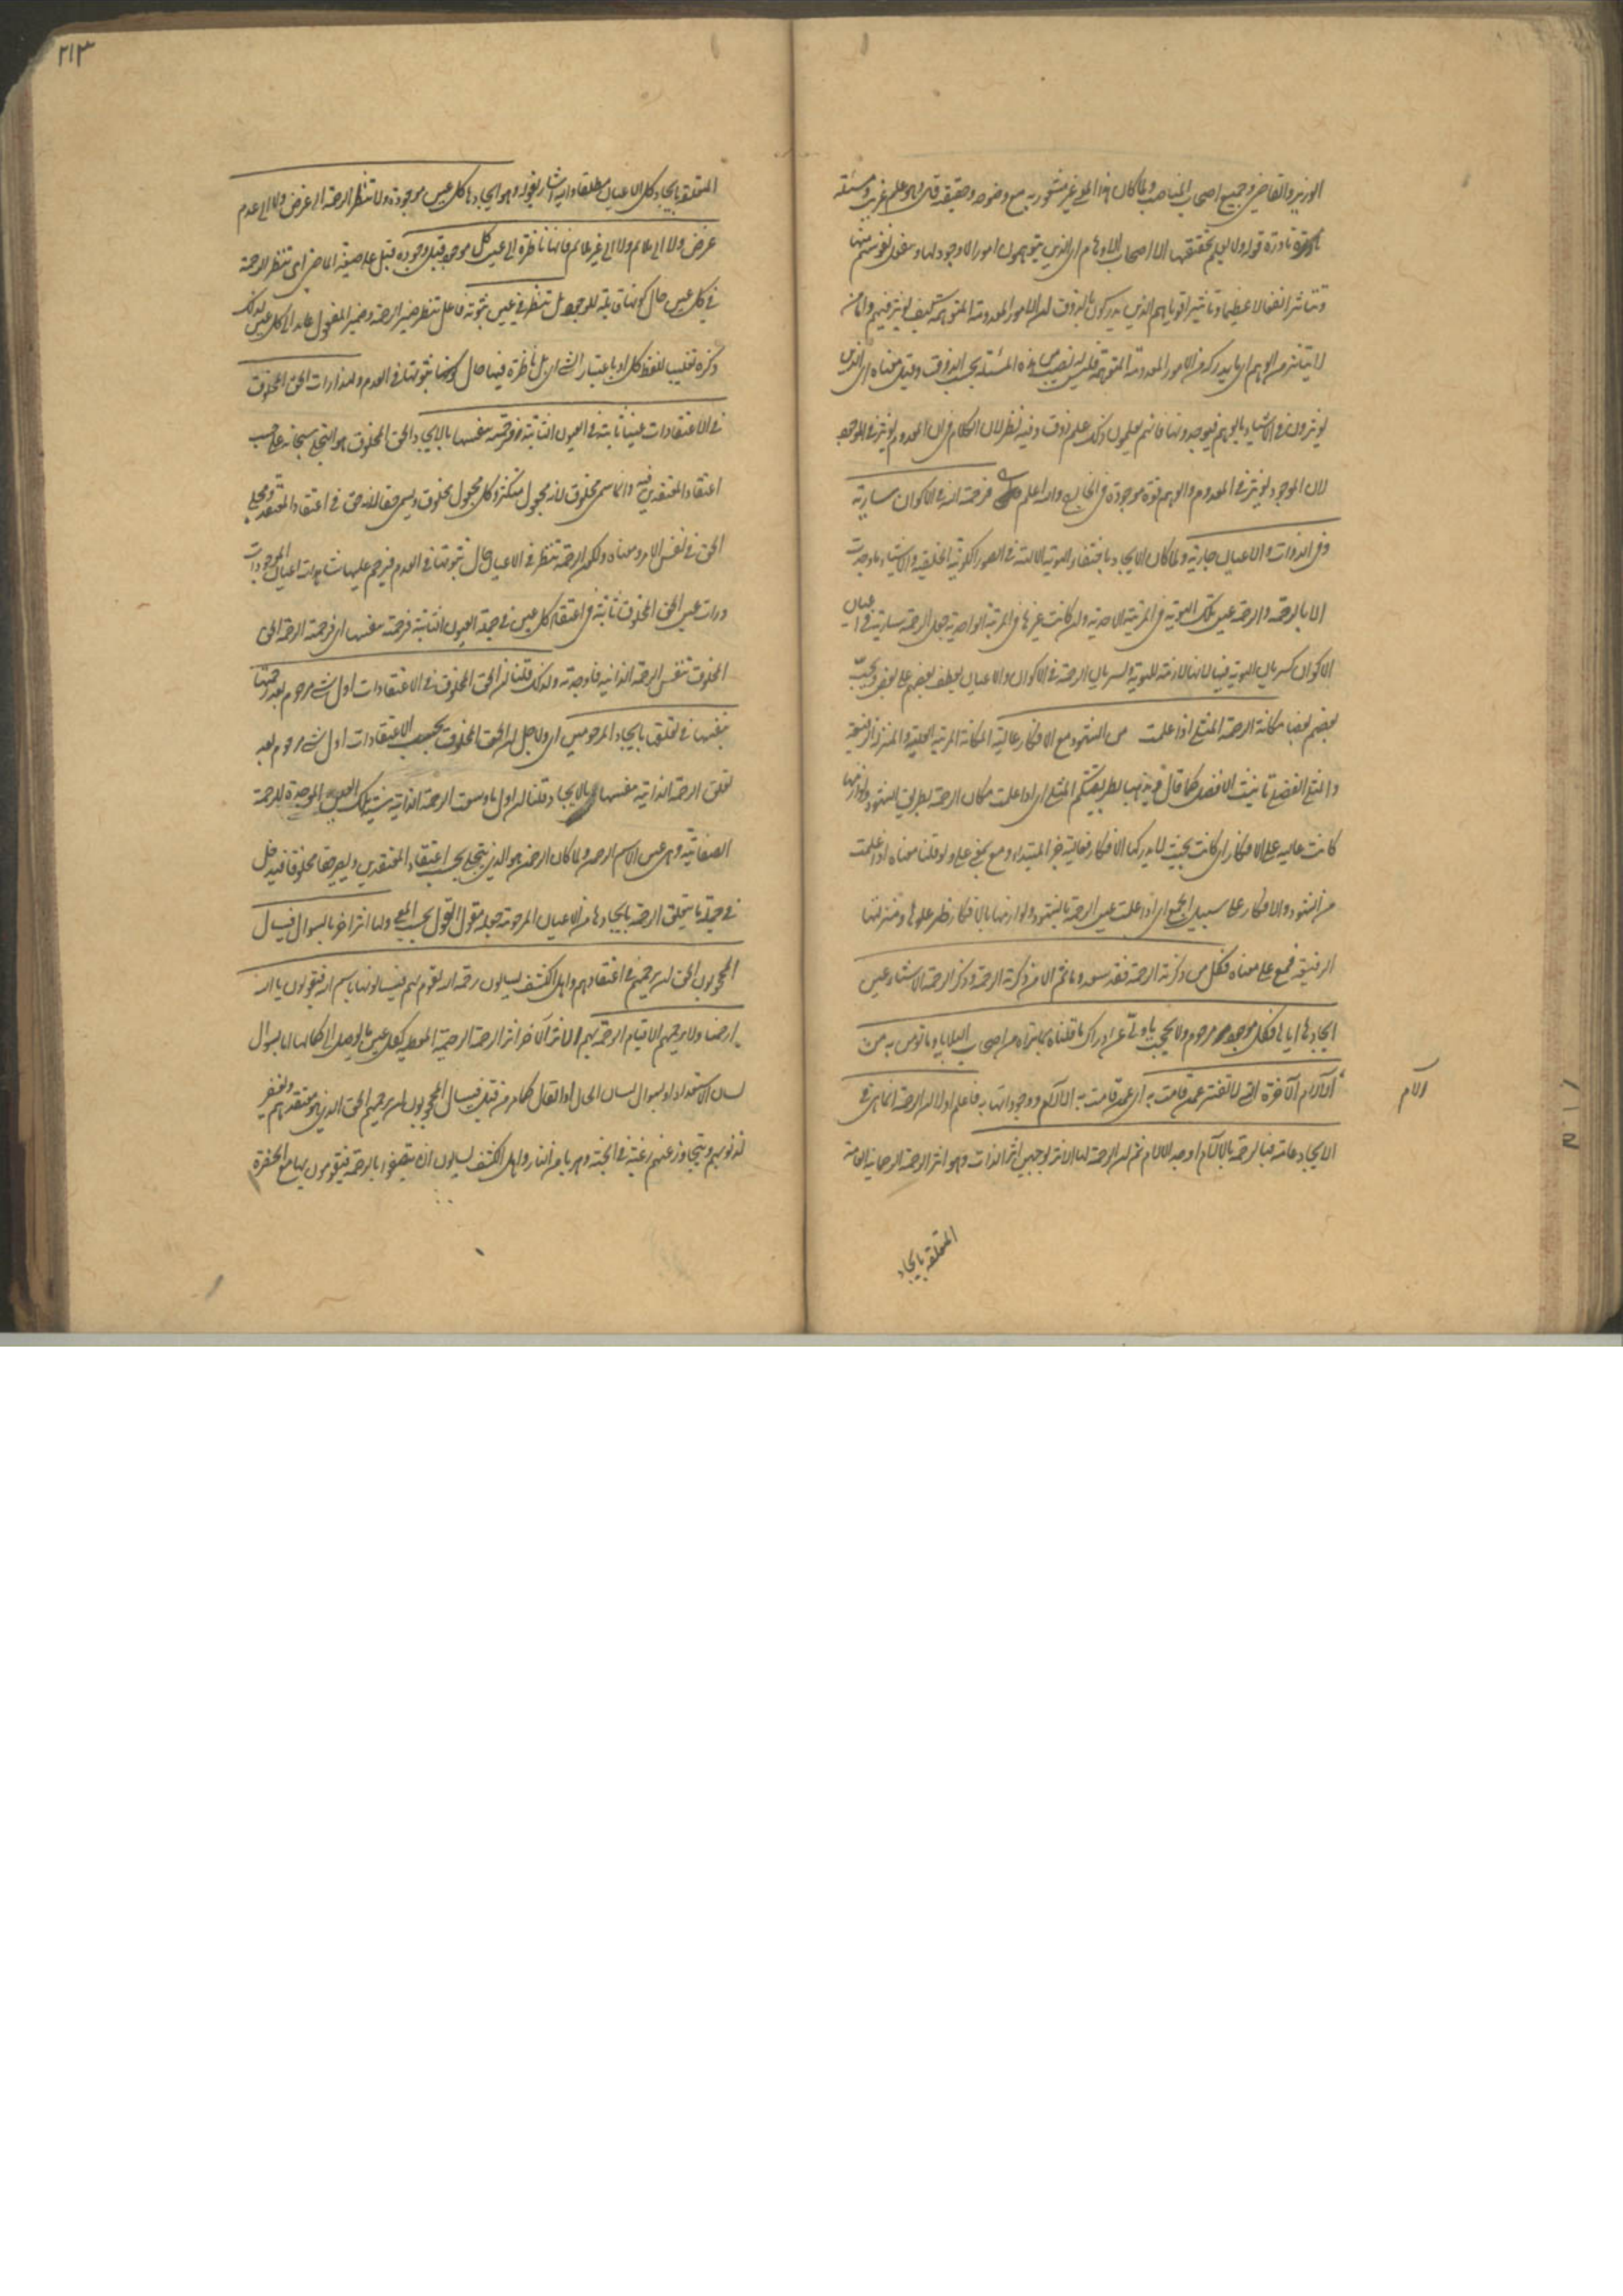 الوزير والقاضي وجميع اصحاب المناصب ولما كان هذا المعنى غير مشعور به مع وضوحه وحقيقته قال وهو علم غريب ومسئلة
نادرة قوله ولا يعلم تحقيقها الا اصحاب الاوهام اى الذين يتوهمون امورا لا وجود لها وتنفعل نفوسهم منها
وتتاثر انفعالا عظيما وتاثيرا قويا فهم الذين يدركون بالذوق ان الامور المعدومة المتوهمة كيف يؤثر فيهم واما من
لا يتاثر من الوهم اى ما يدركه من الامور المعدومة المتوهمة فليس له نصيب من هذه المسئلة بحسب الذوق وقيل معناه اى الذين
يؤثرون في الاشياء بالوهم فيوجدونها فانهم يعلمون ذلك علم ذوق وفيه نظر لان الكلام في ان المعدوم يؤثر في الموجود
لان الموجود يؤثر في المعدوم والوهم قوة موجودة في الخارج والله اعلم فرحمة الله في الاكوان سارية
وفي الذوات والاعيان جارية ولما كان الايجاد باختفاء الهوية الالهية في الصور الكونية الخلقية والاشياء ما وجدت
الا بالرحمة والرحمة عين تلك الهوية في المرتبة الاحدية وان كانت غيرها في المرتبة الواحدية جعل الرحمة سارية في اعيان
الاكوان كسريان الهوية فيها لانها لازمة للهوية ولسريان الرحمة في الاكوان والاعيان يعطف بعضهم على بعض ويحب
بعضهم بعضا مكانة الرحمة المثلى اذا علمت من الشهود مع الافكار عالية المكانة المرتبة العلية والمنزلة الرفيعة
والمثلى الفضلى تانيث الافضل كما قال ويذهبا بطريقتكم المثلى اى اذا علمت مكان الرحمة بطريق الشهود ولوازمها
كانت عالية على الافكار اى كانت بحيث لا يدركها الافكار فعالية خبر المبتداء ومع بمعنى على ولو قلنا معناه اذا علمت
من الشهود والافكار على سبيل الجمع اى اذا علمت عين الرحمة بالشهود ولوازمها بالافكار ظهر علوها ومنزلتها
الرفيعة فمع على معناه فكل من ذكرته الرحمة فقد سعد وما ثم الا من ذكرته الرحمة وذكر الرحمة الاشياء عين
ايجادها اياها فكل موجود مرحوم ولا تحجب يا ولى عن ادراك ما قلناه بما تراه من اصحاب البلايا وما تؤمن به من
آلام الآخرة التى لا تفتر عمن قامت به اى عمن قامت به الآلام ووجودها به فاعلم اولا ان الرحمة انما هى في
الايجاد عامة فبالرحمة بالآلام اوجد الآلام ثم ان الرحمة لها الاثر بوجهين اثر بالذات وهو اثر الرحمة الرحمانية العامة
الآلام
المتعلقة بايجاد
٢١٣
المتعلقة بايجاد كل الاعيان مطلقا واليه اشار بقوله وهو ايجادها كل عين موجودة ولا تنظر الرحمة الى غرض ولا الى عدم
غرض ولا الى ملائم ولا الى غير ملائم فانها ناظرة الى عين كل موجود قبل وجوده قبل على صيغة الماضى اى تنظر الرحمة
في كل عين حال كونها قابلة للوجود بل تنظر في عين ثبوته فاعل تنظر ضمير الرحمة وضمير المفعول عائد الى كل عين لذلك
ذكره تغليبا للفظ كل او باعتبار الشئ اى بل ناظرة فيها حال كونها ثبوتها في العدم ولهذا رات الحق المخلوق
في الاعتقادات عينا ثابتة في العيون الثابتة فرحمته بنفسها بالايجاد الحق المخلوق هو المتجلى سبحانه على حسب
اعتقاد المعتقدين فيه وانما سمى مخلوق لانه مجعول متكثر وكل مجعول مخلوق ويسمى حقا لانه حق في اعتقاد المعتقد ومجلى
الحق في نفس الامر ومعناه ولكون الرحمة تنظر في الاعيان حال ثبوتها في العدم فيرحم عليها شاهدت اعيان الموجودات
ورات عين الحق المخلوق ثابتة في اعتقاد كل عين في جملة العيون الثابتة فرحمته بنفسها اى فرحمته الرحمة الحق
المخلوق بنفس الرحمة الذاتية فاوجدته ولذلك قلنا ان الحق المخلوق في الاعتقادات اول شئ مرحوم بعد رحمتها
بنفسها في تعلق بايجاد المرحومين اى ولاجل ان الحق المخلوق بحسب الاعتقادات اول شئ مرحوم بعد
تعلق الرحمة الذاتية بنفسها بالايجاد قلنا ان اول ما وسعت الرحمة الذاتية شيئية تلك العين الموجدة للرحمة
الصفاتية وهى عين الاسم الرحمن ولما كان الرحمن هو الذى يتجلى بحسب اعتقاد المعتقدين ويصير حقا مخلوقا فيدخل
في جملة ما يتعلق الرحمة بايجادها من الاعيان المرحومة جعله مقول القول بحسب المعنى ولها اثر آخر بالسوال فيسال
المحجوبون الحق ان يرحمهم في اعتقادهم واهل الكشف يسالون رحمة الله تقوم بهم فيسالونها باسم الله فيقولون يا الله
ارحمنا ولا يرحمهم الا قيام الرحمة بهم والاثر الآخر اثر الرحمة الرحيمية المعطية لكل عين ما يوصل الى كمالها اما بسوال
لسان الاستعداد او بسوال لسان الحال او القال كما مر من قبل فيسال المحجوبون ان يرحمهم الحق الذى هو معتقدهم ويغفر
لذنوبهم ويتجاوز عنهم رغبة في الجنة وهربا من النار واهل الكشف يسالون ان يتصفوا بالرحمة فيقومون بها مع الحضرة